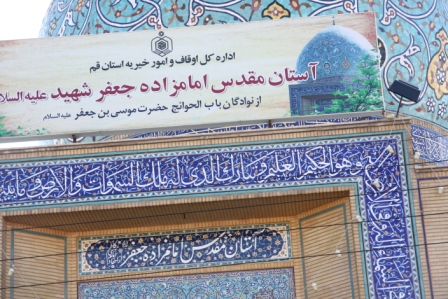 اداره کل اوقاف و امور خیریه استان قم
آستان مقدس امامزاده جعفر شهید علیه السلا
از نوادگان باب الحوائج حضرت موسی بن جعفر علیه السلام
و هو الحکیم العلیم و تبارک الذی له ملک السموات و الارض و ما بینهما
آستان مقدس امامزاده جعفر